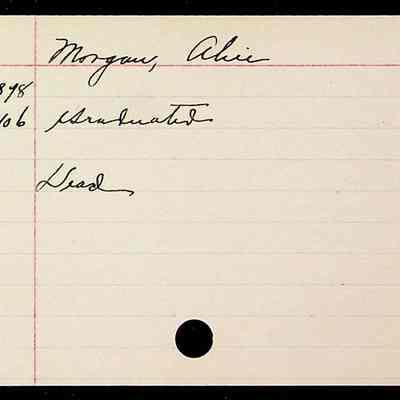 Morgan, Alice
898
06 Graduated
Dead